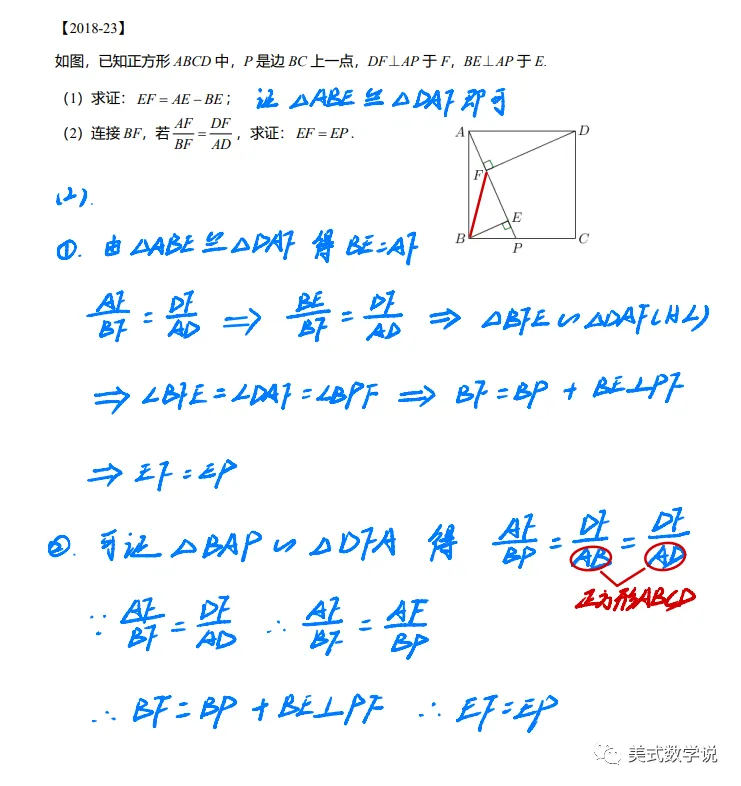 【2018-23】
如图，已知正方形 ABCD 中，P 是边 BC 上一点，DF⊥AP 于 F，BE⊥AP 于 E.
（1）求证：EF = AE − BE； 证 △ABE ≌ △DAF 即可
（2）连接 BF，若 AF/BF = DF/AD，求证：EF = EP.
A D
F
E
B P C
(2).
①. 由 △ABE ≌ △DAF 得 BE=AF
AF/BF = DF/AD ⇒ BE/BF = DF/AD ⇒ △BFE ∽ △DAF(HL)
⇒ ∠BFE = ∠DAF = ∠BPF ⇒ BF = BP + BE⊥PF
⇒ EF = EP
②. 可证 △BAP ∽ △DFA 得 AF/BP = DF/AB = DF/AD
正方形ABCD
∵ AF/BF = DF/AD ∴ AF/BF = AF/BP
∴ BF = BP + BE⊥PF ∴ EF = EP
美式数学说